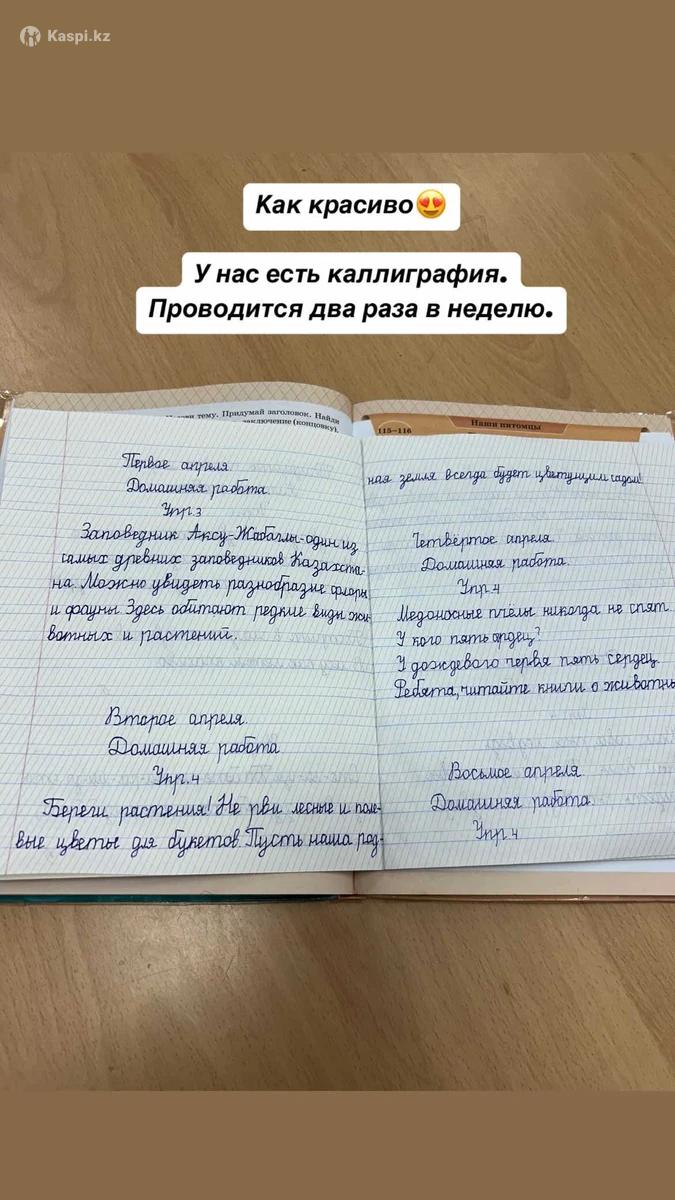 Kaspi.kz
Как красиво😍
У нас есть каллиграфия.
Проводится два раза в неделю.
тему. Придумай заголовок. Найди
заключение (концовку).
Первое апреля
Домашняя работа.
Упр.3
Заповедник Аксу-Жабаглы-один из
самых древних заповедников Казахста-
на. Можно увидеть разнообразие флоры
и фауны. Здесь обитают редкие виды жи-
вотных и растений.
Второе апреля.
Домашняя работа
Упр.4
Береги растения! Не рви лесные и поле-
вые цветы для букетов. Пусть наша род-
115–116
Наши питомцы
ная земля всегда будет цветущим садом!
Четвёртое апреля.
Домашняя работа.
Упр.4
Медоносные пчёлы никогда не спят.
У кого пять сердец?
У дождевого червя пять сердец.
Ребята, читайте книги о животны
Восьмое апреля.
Домашняя работа.
Упр.4